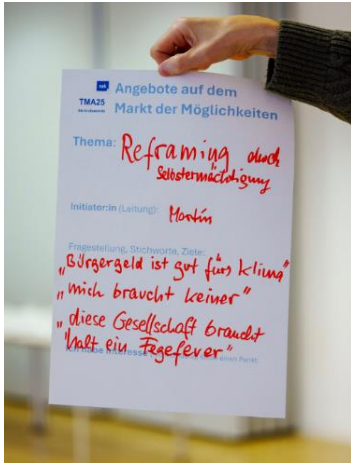 Angebote auf dem
TMA25
Markt der Möglichkeiten
Thema: Reframing durch
Selbstermächtigung
Initiator:in (Leitung): Martin
Fragestellung, Stichworte, Ziele:
„Bürgergeld ist gut fürs Klima"
„mich braucht keiner"
„diese Gesellschaft braucht
halt ein Fegefever"
Ich habe Interesse einen Punkt!